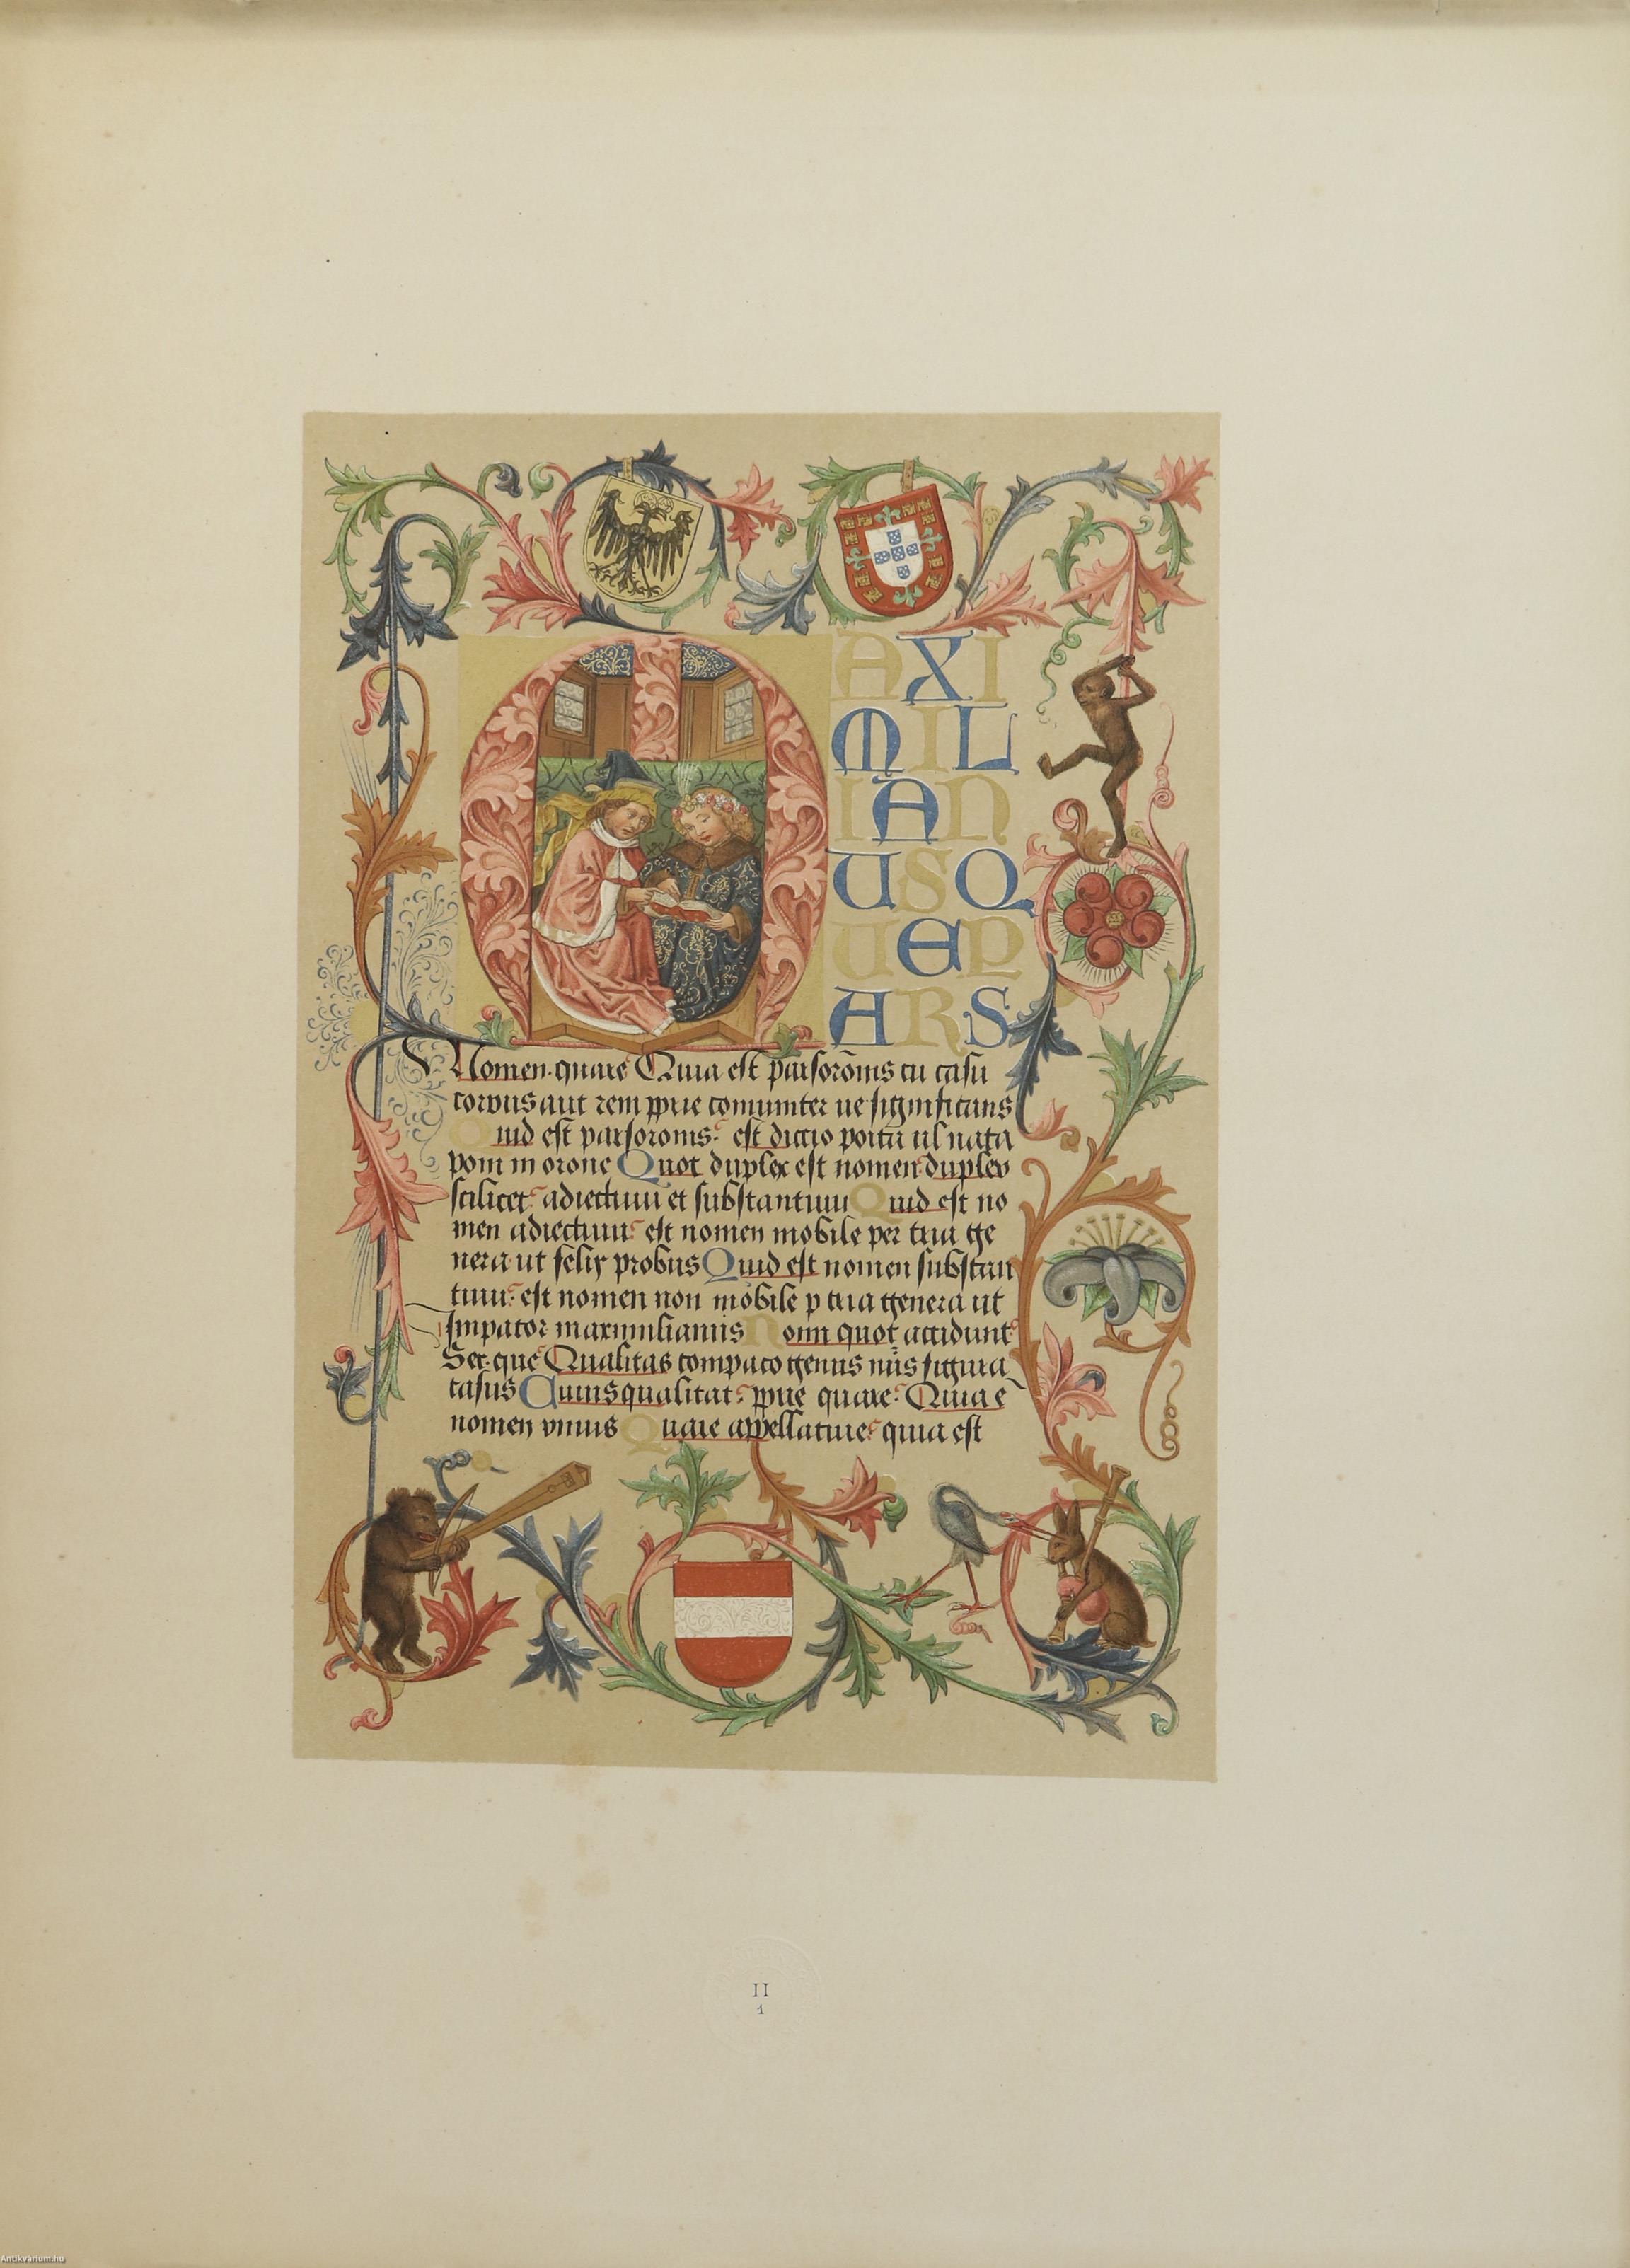 M AXI
MIL
IAN
USQ
UEP
ARS
Nomen quare Quia est parsorōnis cū casu
corpus aut rem ꝓprie comuniter ue significans
Quid est parsoronis est dictio posita ul nata
poni in orone Quot duplex est nomen duplex
scilicet adiectiuū et substantiuū Quid est no
men adiectiuū est nomen mobile per tria ge
nera ut felix probus Quid est nomen substan
tiuū est nomen non mobile p tria genera ut
Impator maximilianus Noīn quot accidunt
Sex que Qualitas compatio genus nūs figura
casus Cuius qualitat ꝓprie quare Quia ē
nomen vnius Quare appellatiue quia est
II
1
Antikvarium.hu